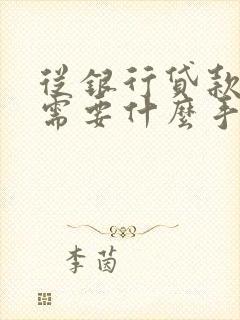 從銀行貸款
需要什麼手
李茵